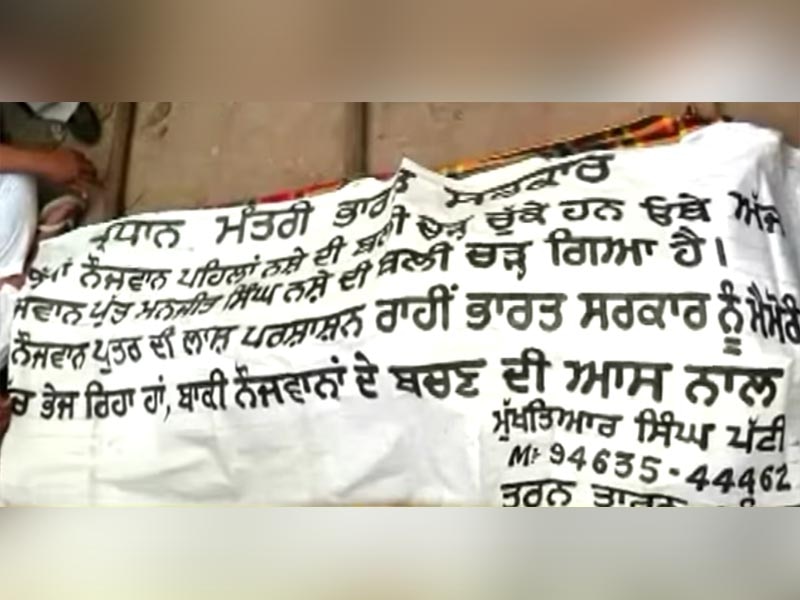 ਪ੍ਰਧਾਨ ਮੰਤਰੀ ਭਾਰਤ ਸਰਕਾਰ
ਨੌਜਵਾਨ ਪਹਿਲਾਂ ਨਸ਼ੇ ਦੀ ਬਲੀ ਚੜ੍ਹ ਚੁੱਕੇ ਹਨ ਓਥੇ ਅੱਜ
ਪੁੱਤ ਮਨਜੀਤ ਸਿੰਘ ਨਸ਼ੇ ਦੀ ਬਲੀ ਚੜ੍ਹ ਗਿਆ ਹੈ।
ਨੌਜਵਾਨ ਪੁਤਰ ਦੀ ਲਾਸ਼ ਪਰਸ਼ਾਸ਼ਨ ਰਾਹੀਂ ਭਾਰਤ ਸਰਕਾਰ ਨੂੰ
ਭੇਜ ਰਿਹਾ ਹਾਂ, ਬਾਕੀ ਨੌਜਵਾਨਾਂ ਦੇ ਬਚਣ ਦੀ ਆਸ ਨਾਲ
ਮੁੱਖਤਿਆਰ ਸਿੰਘ ਪੱਟੀ
M: 94635-44462
ਤਰਨ ਤਾਰਨ